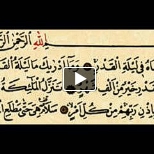 اللهِ الرَّحْمٰنِ الرَّ
نَاهُ فِي لَيْلَةِ الْقَدْرِ وَمَا أَدْرٰيكَ مَا لَيْلَةُ الْقَ
قَدْرِ خَيْرٌ مِنْ أَلْفِ تَنَزَّلُ الْمَلٰئِكَةُ
بِإِذْنِ رَبِّهِمْ مِنْ كُلِّ أَمْرٍ سَلَامٌ هِيَ حَتّٰى مَطْلَعِ الْ